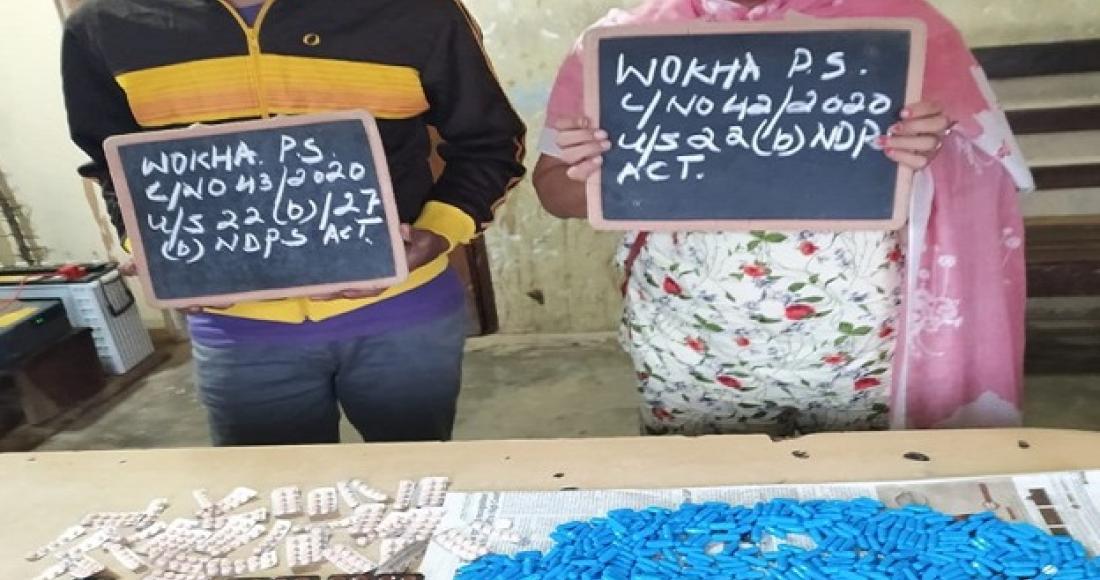 WOKHA. P.S.
C/NO 43/2020
U/S 22 (b)/27
(b) NDPS ACT.
WOKHA P.S.
C/NO 42/2020
U/S 22(b) NDPS
ACT.